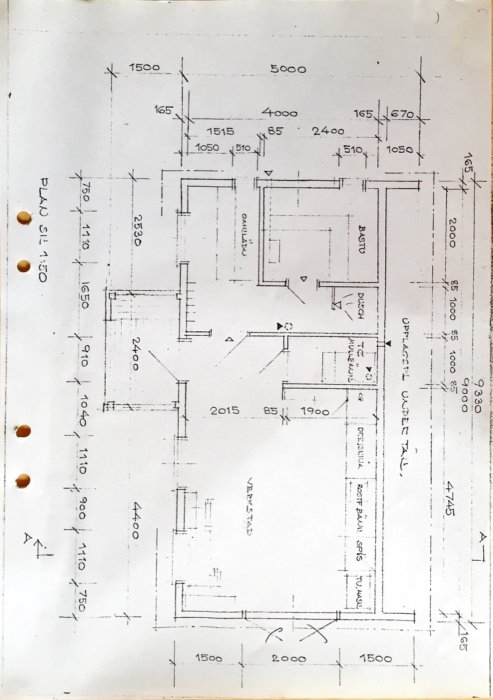 1500
5000
165
4000
165
670
1515
85
2400
1050
510
510
1050
165
750
1110
1650
910
1040
1110
900
1110
750
2530
2400
4400
PLAN SK 1:50
OMKLÄDN
BASTU
DUSCH
2000
85
1000
85
1000
85
4745
9330
9000
165
UPPLAGSTL UNDER TAK.
2015
85
1900
VERKSTAD
SPIS
A
A
1500
2000
1500